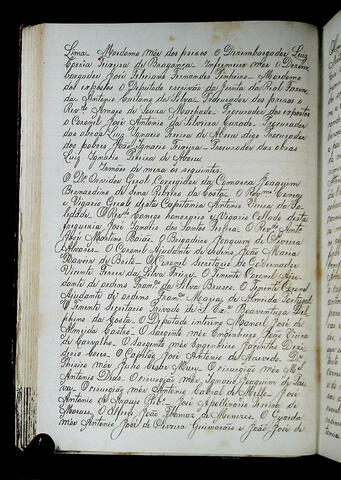 Lima. Mordomo mór dos presos o Dezembargador Luiz
Teixeira de Bragança. Infermeiro mór o Dezem-
bargador José Feliciano Fernandes Pinheiro. Mordomo
dos expostos o Deputado escrivão da Junta da Real Fazen-
da Antonio Caetano da Silva. Procurador dos presos o
Revdo Amaro de Souza Machado. Procurador dos expostos
o Coronel José Antonio da Silveira Cazado. Procurador
das obras Luiz Ignacio Pereira de Abreu digo Procurador
dos pobres João Ignacio Teixeira. Procurador das obras
Luiz Ignacio Pereira de Abreu.
Irmãos de meza os seguintes:
O Dr Ouvidor Geral Corregidor da Comarca Joaquim
Bernardino de Sena Ribeiro da Costa. O Revmo Conego
e Vigario Geral desta Capitania Antonio Vieira da So-
ledade. O Revdo Conego honorario e Vigario Collado desta
freguezia José Ignacio dos Santos Pereira. O Revdo Anto
José Martins Baião. O Brigadeiro Joaquim de Oliveira
Alvares. O Coronel Ajudante de Ordens João Maria
Xavier de Brito. O Coronel Secretario do Governador
Vicente Ferrer da Silva Freire. O Tenente Coronel Aju-
dante de ordens Franco da Silva. O Tenente Coronel
Ajudante de ordens Franco Maria de Almeida Portugal
O Tenente Secretario Privado de S. Exa Boaventura Del-
phim da Costa. O Deputado interino Manoel José de
Almeida Castro. O Sargento mór Engenheiro José Vieira
de Carvalho. O Sargento mór Engenheiro Jacintho Dezi-
derio Cony. O Capitão José Antonio de Azevedo. Dr
mór Julio Cezar Muzi. O cirurgião mór Ml
Antonio Dias. O cirurgião mór Ignacio Joaquim de Pai-
va. O cirurgião mór Antonio Cabral de Mello. José
Antonio de Araujo Ribo. José Apollinario Pereira de
Moraes. O Alferes João Thomaz de Menezes. O Guarda
mór Antonio José de Oliveira Guimarães e João José de